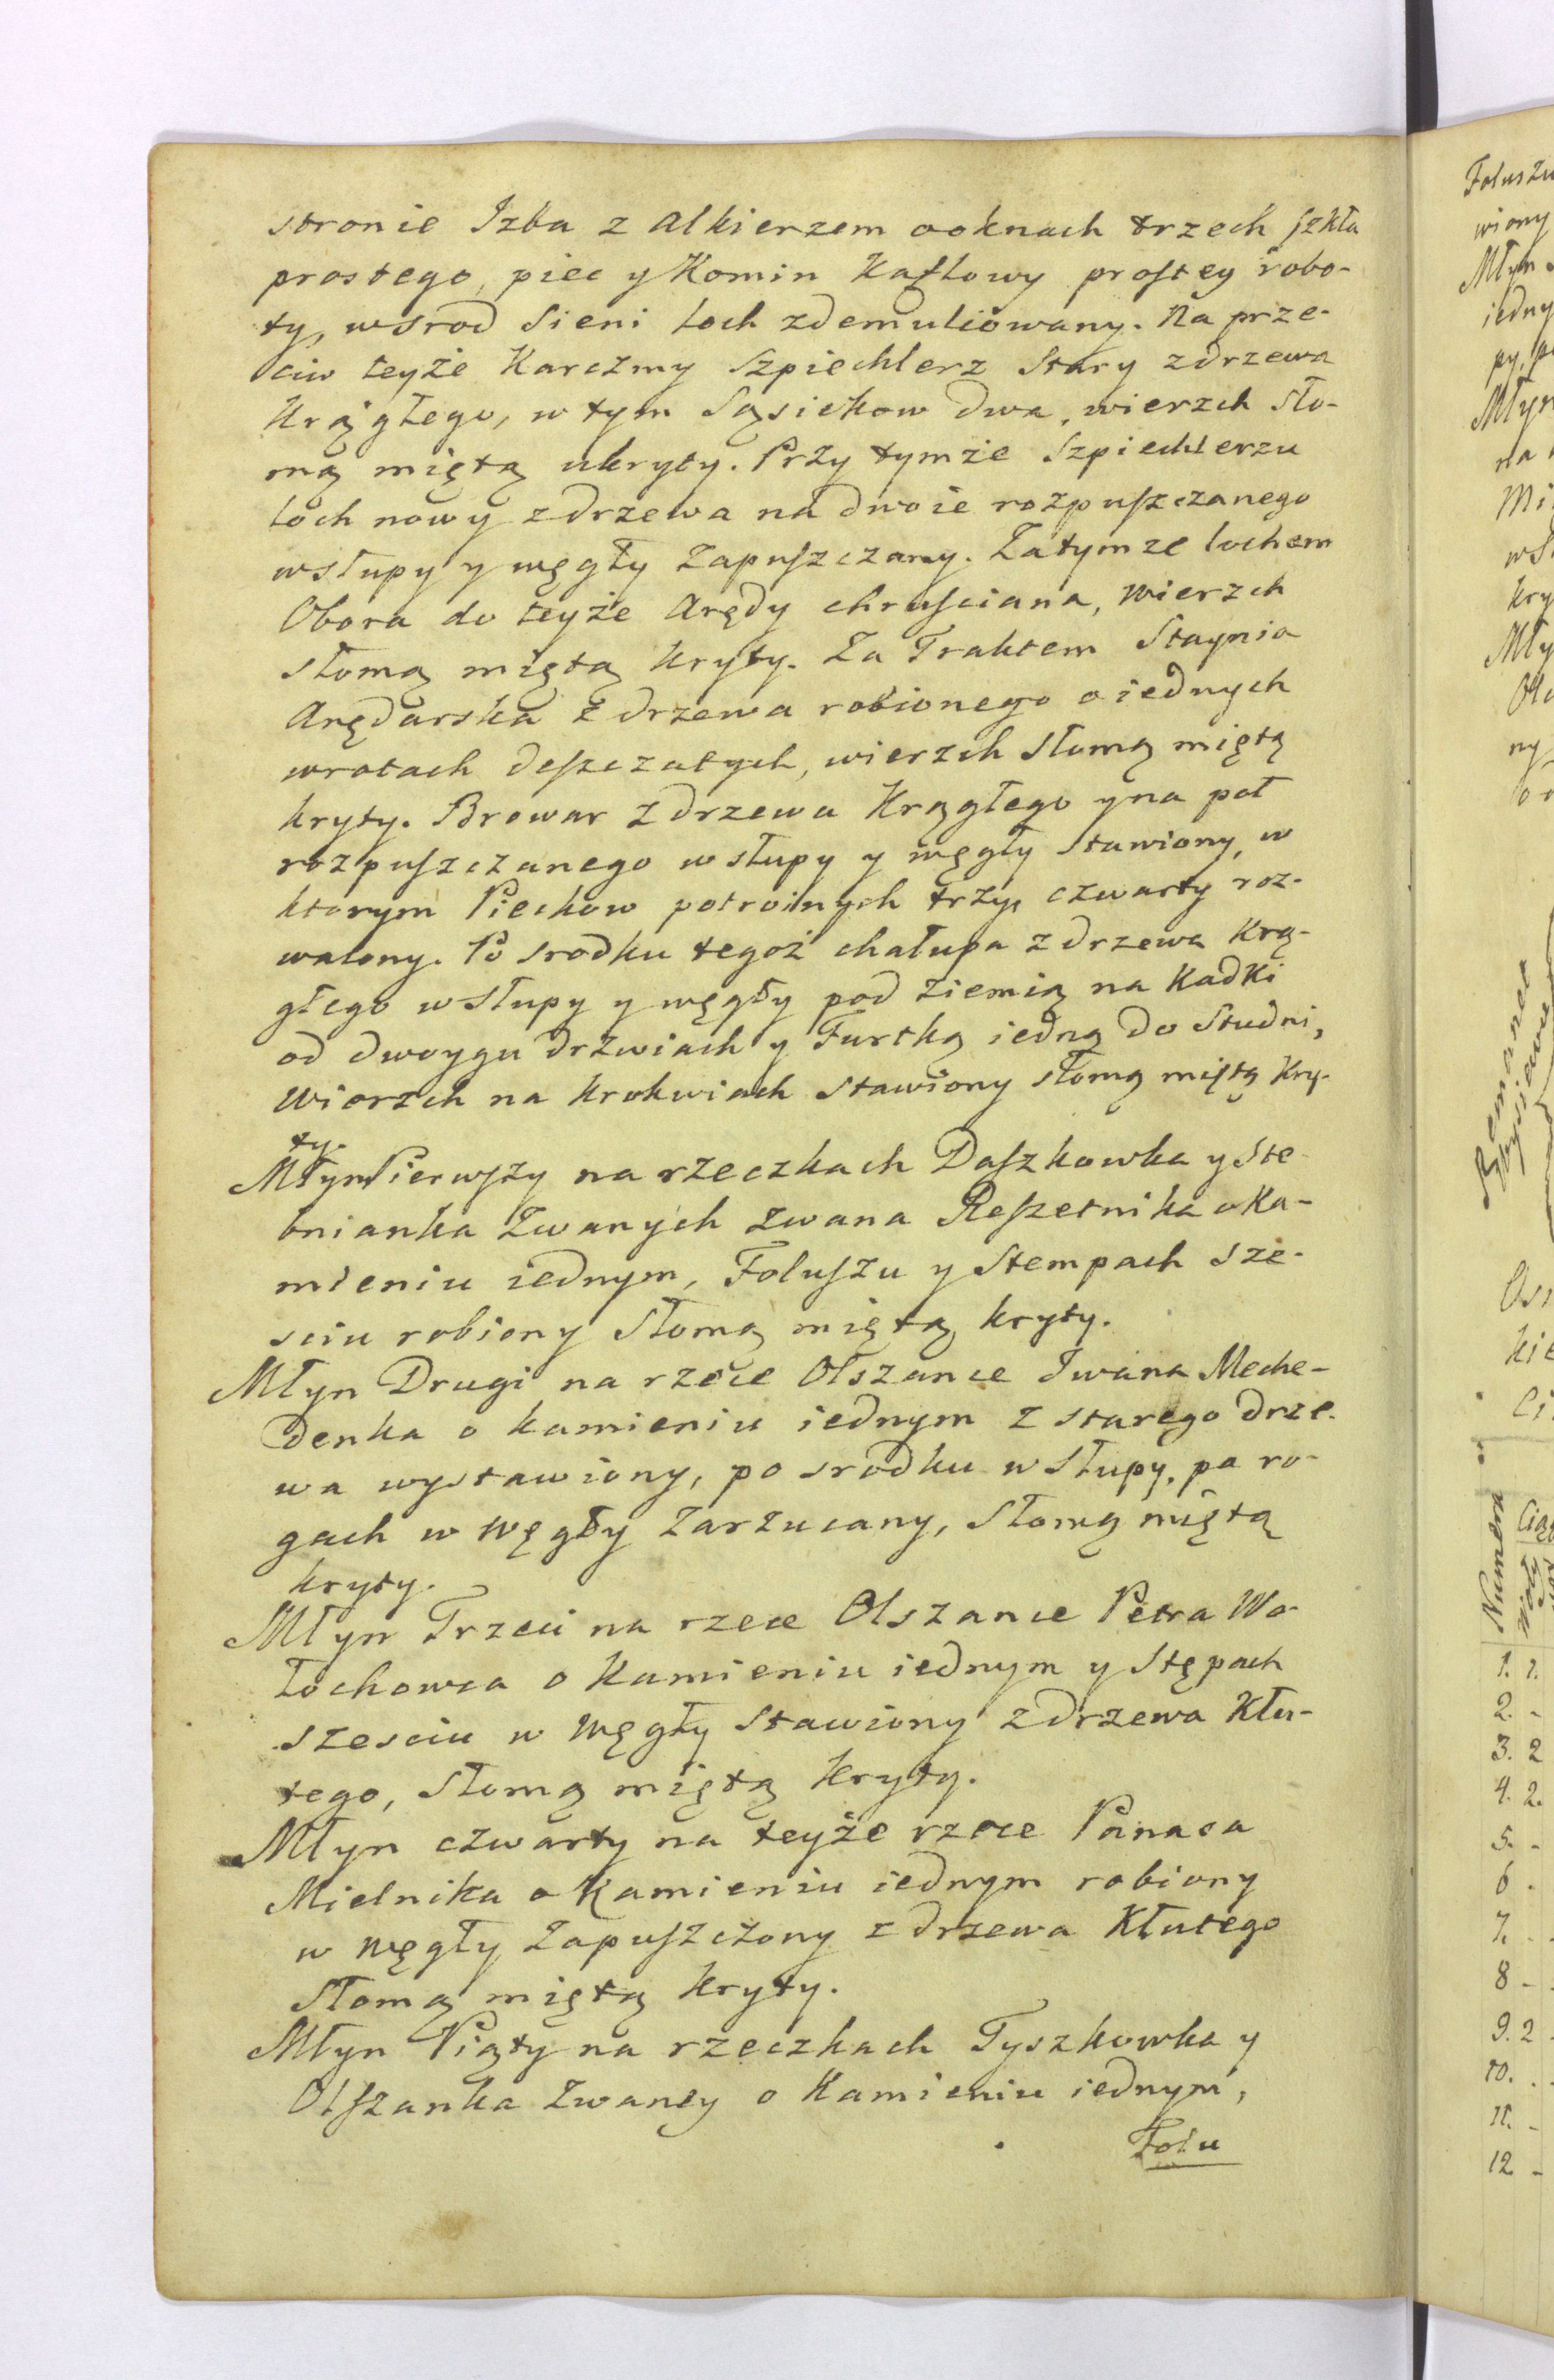 stronie Izba z alkierzem o oknach trzech szkła
prostego, piec y Komin Kaflowy prostey robo-
ty, wsrod Sieni loch zdemuliowany. Na prze-
ciw teyże Karczmy Szpiechlerz Stary z drzewa
Krągłego, w tym Sąsiekow dwa, wierzch sło-
mą miętą ukryty. Przy tymże Szpiechlerzu
loch nowy z drzewa na dwoie rozpuszczanego
w słupy y węgły zapuszczany. Za tymze lochem
Obora do teyże Arędy chrusciana, wierzch
słomą miętą kryty. Za Traktem Staynia
Arędarska z drzewa robionego o iednych
wrotach deszczatych, wierzch słomą miętą
kryty. Browar z drzewa Krągłego y na poł
rozpuszczanego w słupy y węgły stawiony, w
ktorym Piechow potroinych trzy, czwarty roz-
walony. Po srodku tegoż chałupa z drzewa krą-
głego w słupy y węgły pod ziemią na Kadki
od dwoygu drzwiach y Furtką iedną do Studni,
Wierzch na krokwiach stawiony słomą miętą kry-
ty.
Młyn Pierwszy na rzeczkach Daszkowka y Ste-
bnianka zwanych zwana Reszetnika o Ka-
mieniu iednym, Foluszu y Stempach sze-
sciu robiony słomą miętą kryty.
Młyn Drugi na rzece Olszance Iwana Meche-
denka o kamieniu iednym z starego drze-
wa wystawiony, po srodku w słupy, po ro-
gach w węgły zarzucany, słomą miętą
kryty.
Młyn Trzeci na rzece Olszance Petra Wo-
łochowca o Kamieniu iednym y Stępach
szesciu w węgły stawiony z drzewa Kłu-
tego, słomą miętą kryty.
Młyn czwarty na teyże rzece Panasa
Mielnika o Kamieniu iednym robiony
w węgły zapuszczony z drzewa Kłutego
słomą miętą kryty.
Młyn Piąty na rzeczkach Tyszkowka y
Olszanka zwaney o Kamieniu iednym,
Folu